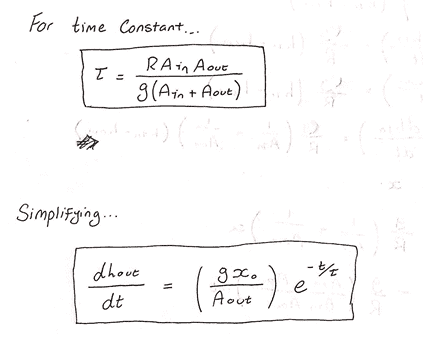 For time Constant...
τ = R Ain Aout / g(Ain + Aout)
Simplifying...
dhout / dt = (g x₀ / Aout) e^(-t/τ)